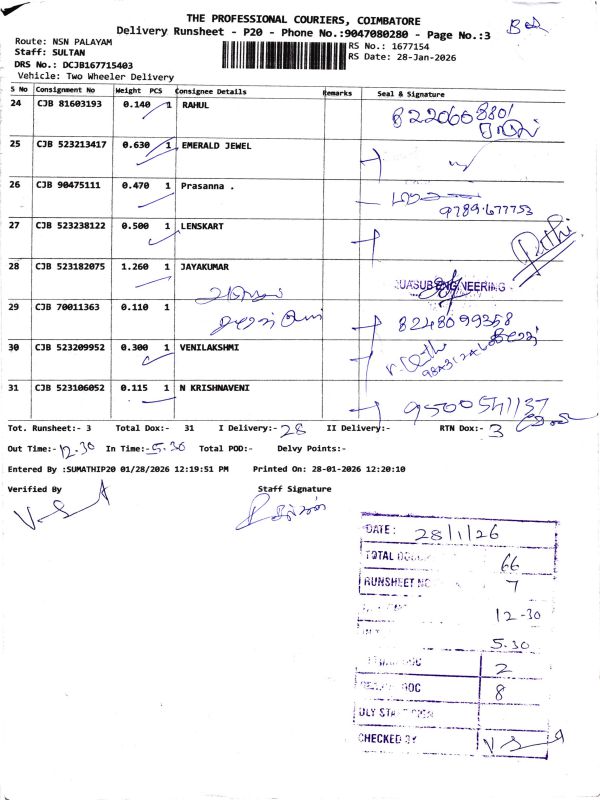 THE PROFESSIONAL COURIERS, COIMBATORE
Delivery Runsheet - P20 - Phone No.:9047080280 - Page No.:3
Route: NSN PALAYAM
RS No.: 1677154
Staff: SULTAN
RS Date: 28-Jan-2026
DRS No.: DCJB167715403
Vehicle: Two Wheeler Delivery
S No Consignment No Weight PCS Consignee Details Remarks Seal & Signature
24 CJB 81603193 0.140 1 RAHUL
25 CJB 523213417 0.630 1 EMERALD JEWEL
26 CJB 90475111 0.470 1 Prasanna .
9789.677753
27 CJB 523238122 0.500 1 LENSKART
28 CJB 523182075 1.260 1 JAYAKUMAR
29 CJB 70011363 0.110 1
8248099358
30 CJB 523209952 0.300 1 VENILAKSHMI
31 CJB 523106052 0.115 1 N KRISHNAVENI
9500541137
Tot. Runsheet:- 3 Total Dox:- 31 I Delivery:- 28 II Delivery:- RTN Dox:- 3
Out Time:- 12.30 In Time:- 5.30 Total POD:- Delvy Points:-
Entered By :SUMATHIP20 01/28/2026 12:19:51 PM Printed On: 28-01-2026 12:20:10
Verified By Staff Signature
DATE: 28/1/26
TOTAL 66
RUNSHEET NO 7
12-30
5.30
2
DOC 8
CHECKED BY